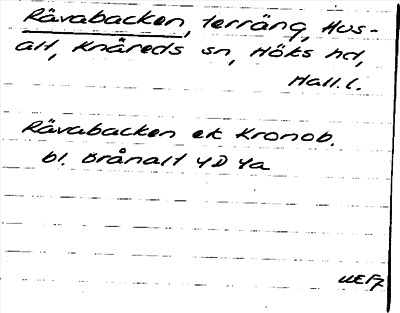 Rävabacken, terräng, Hus-
alt, Knäreds sn, Höks hd,
Hall.l.
Rävabacken ek Kronob.
bl. Brånalt 4D 4a